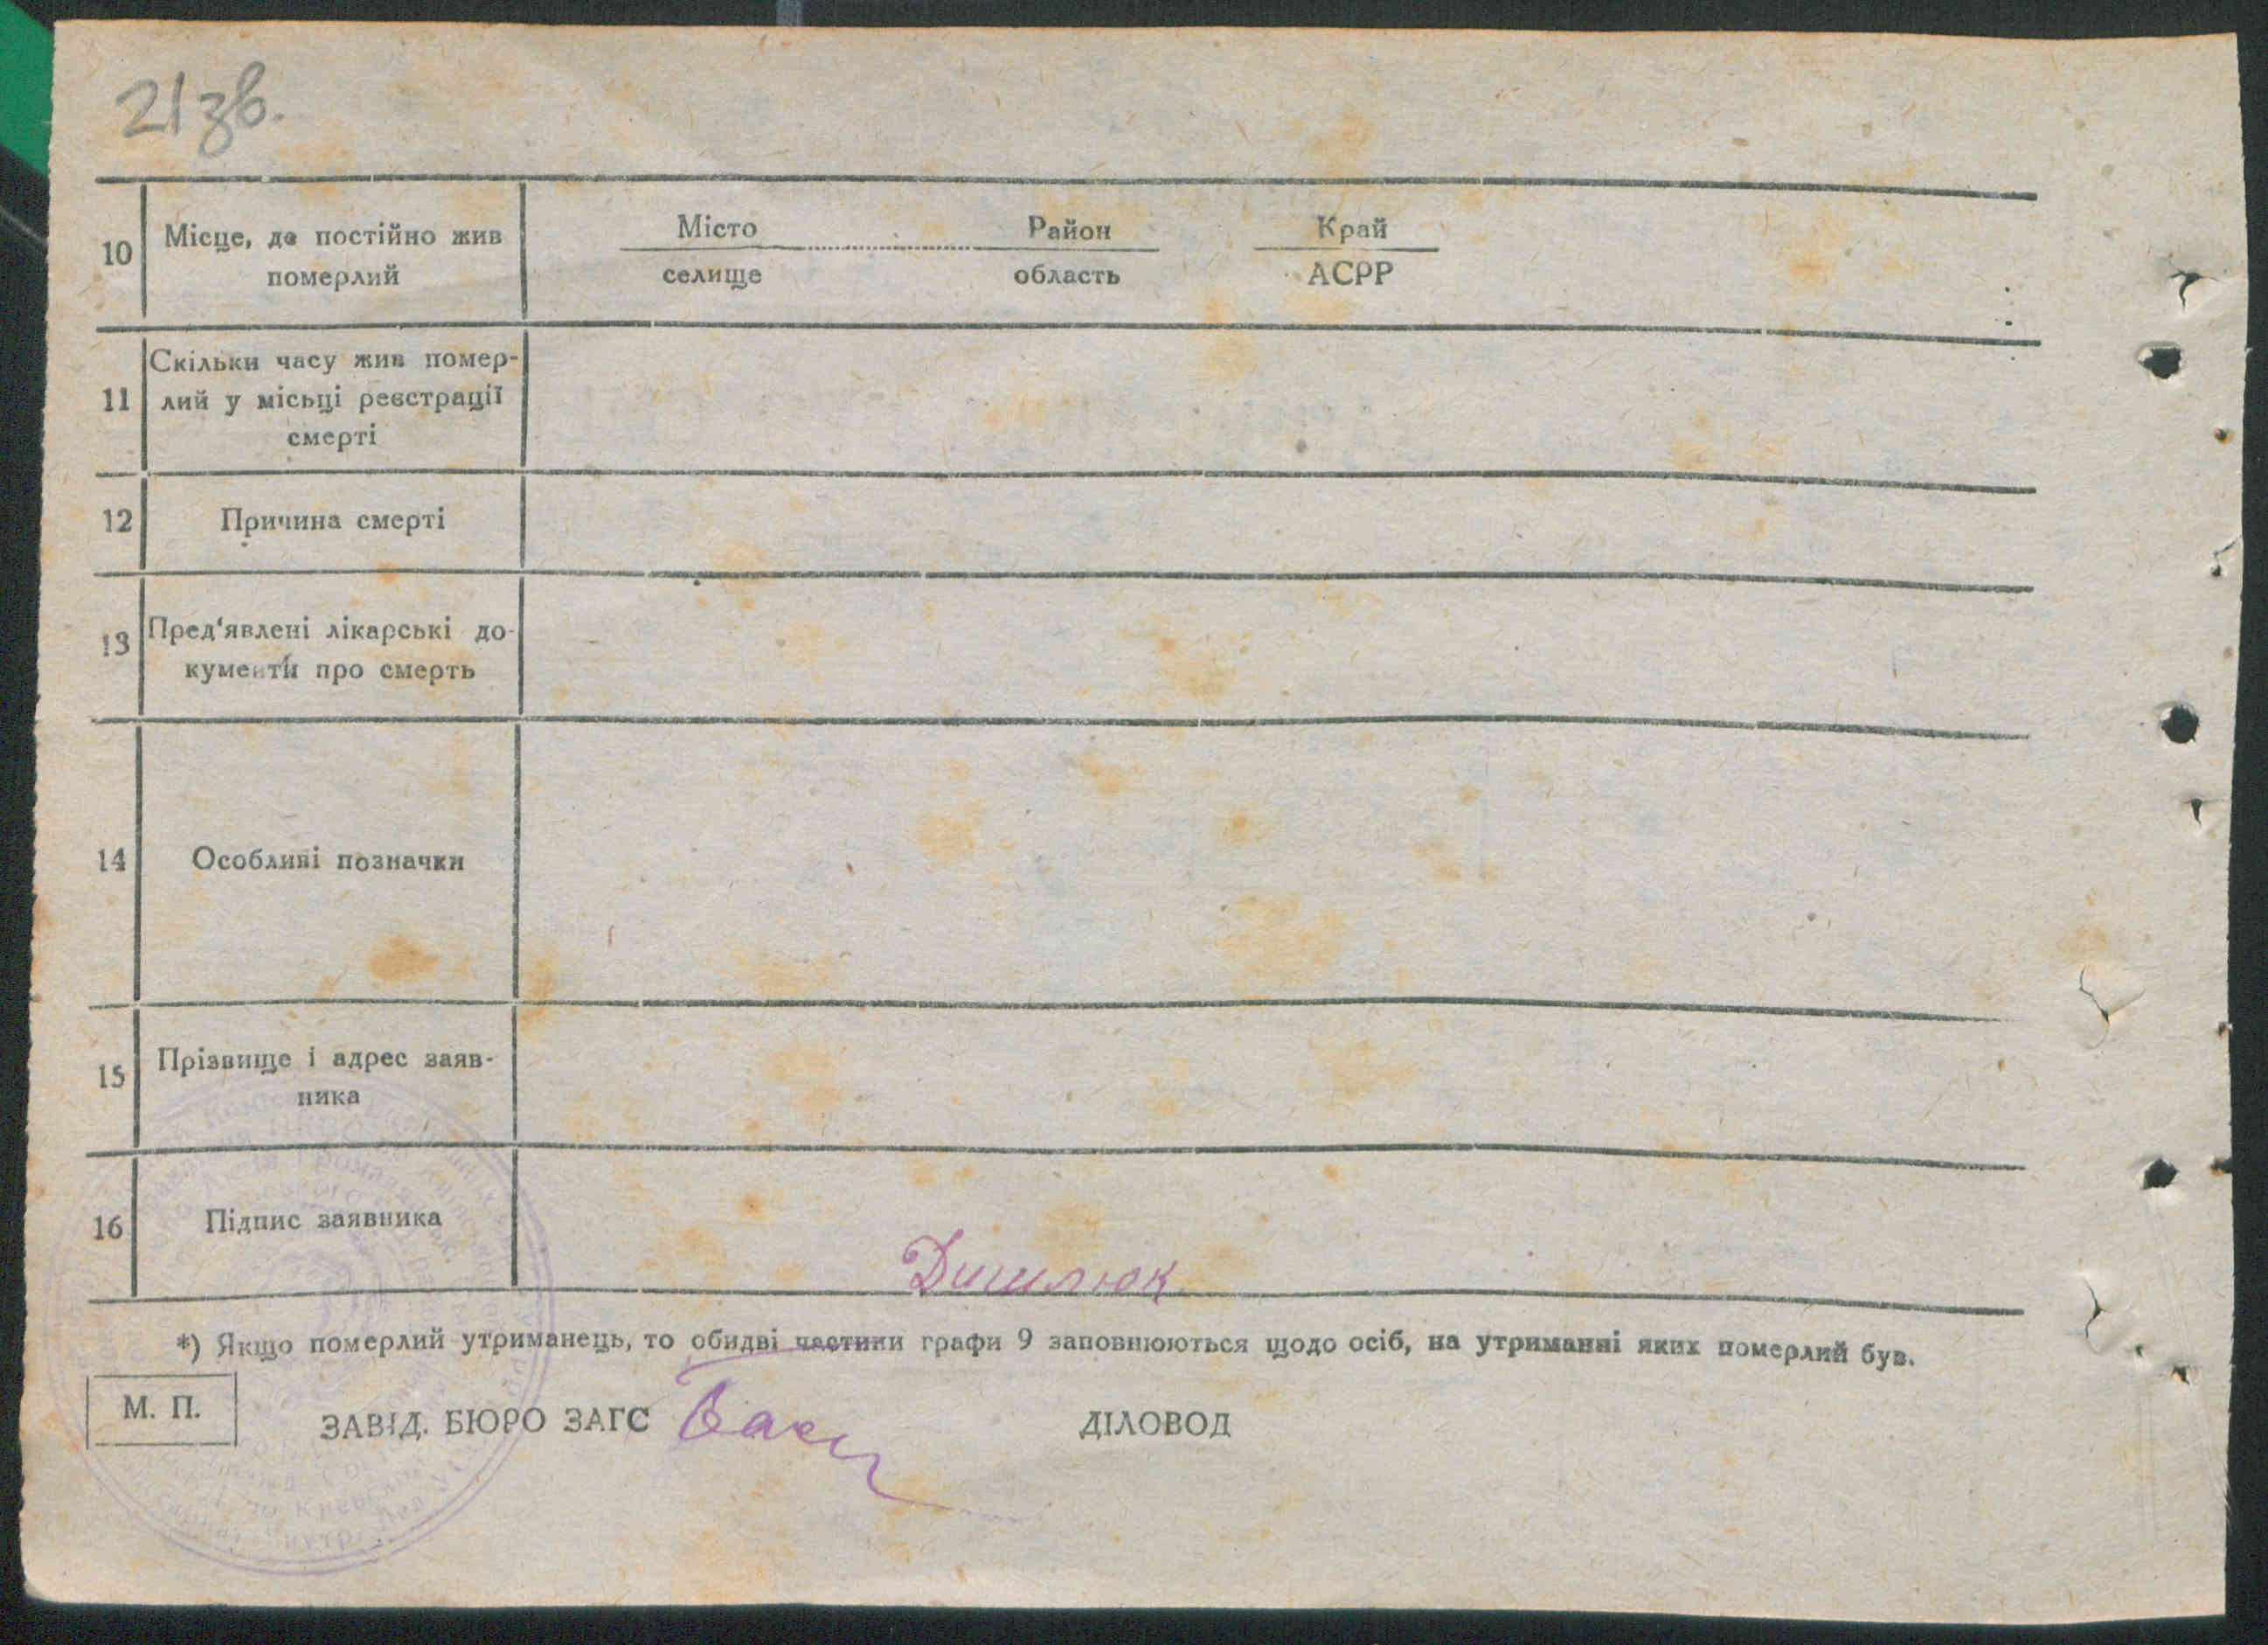 21зв.
10 Місце, де постійно жив померлий
Місто Район Край
селище область АСРР
11 Скільки часу жив помер-
лий у місьці реєстрації
смерті
12 Причина смерті
13 Пред'явлені лікарські до-
кументи про смерть
14 Особливі позначки
15 Прізвище і адрес заяв-
ника
16 Підпис заявника
*) Якщо померлий утриманець, то обидві частини графи 9 заповнюються щодо осіб, на утриманні яких померлий був.
М. П.
ЗАВІД. БЮРО ЗАГС ДІЛОВОД